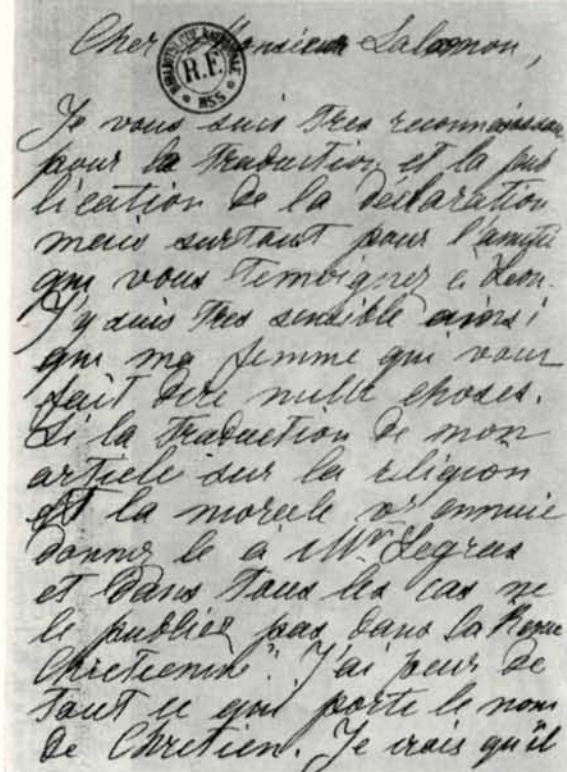 Cher Monsieur Salomon,
BIBLIOTHEQUE NATIONALE
R.F.
MSS
Je vous suis tres reconnaissan
pour la traduction et la pub
lication de la declaration
mais surtout pour l'amitié
que vous temoignez à Leon.
J'y suis tres sensible ainsi
que ma femme qui vous
fait dire mille choses.
Si la traduction de mon
article sur la religion
et la morale vs ennuie
donnez le a Mr Legras
et dans tous les cas ne
le publiez pas dans la Revue
Chretienne". J'ai peur de
tout ce qui porte le nom
de Chretien. Je crois qu'il